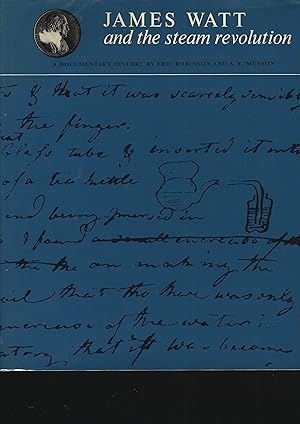 JAMES WATT
and the steam revolution
A DOCUMENTARY HISTORY BY ERIC ROBINSON AND A. E. MUSSON
& that it was scarcely sensibly
the finger.
Glass tube & inserted it into
of a tea kettle
and being immersed in
I found a small increase of the
the on making the
boil that the heat was only
increase of the water
that it was become